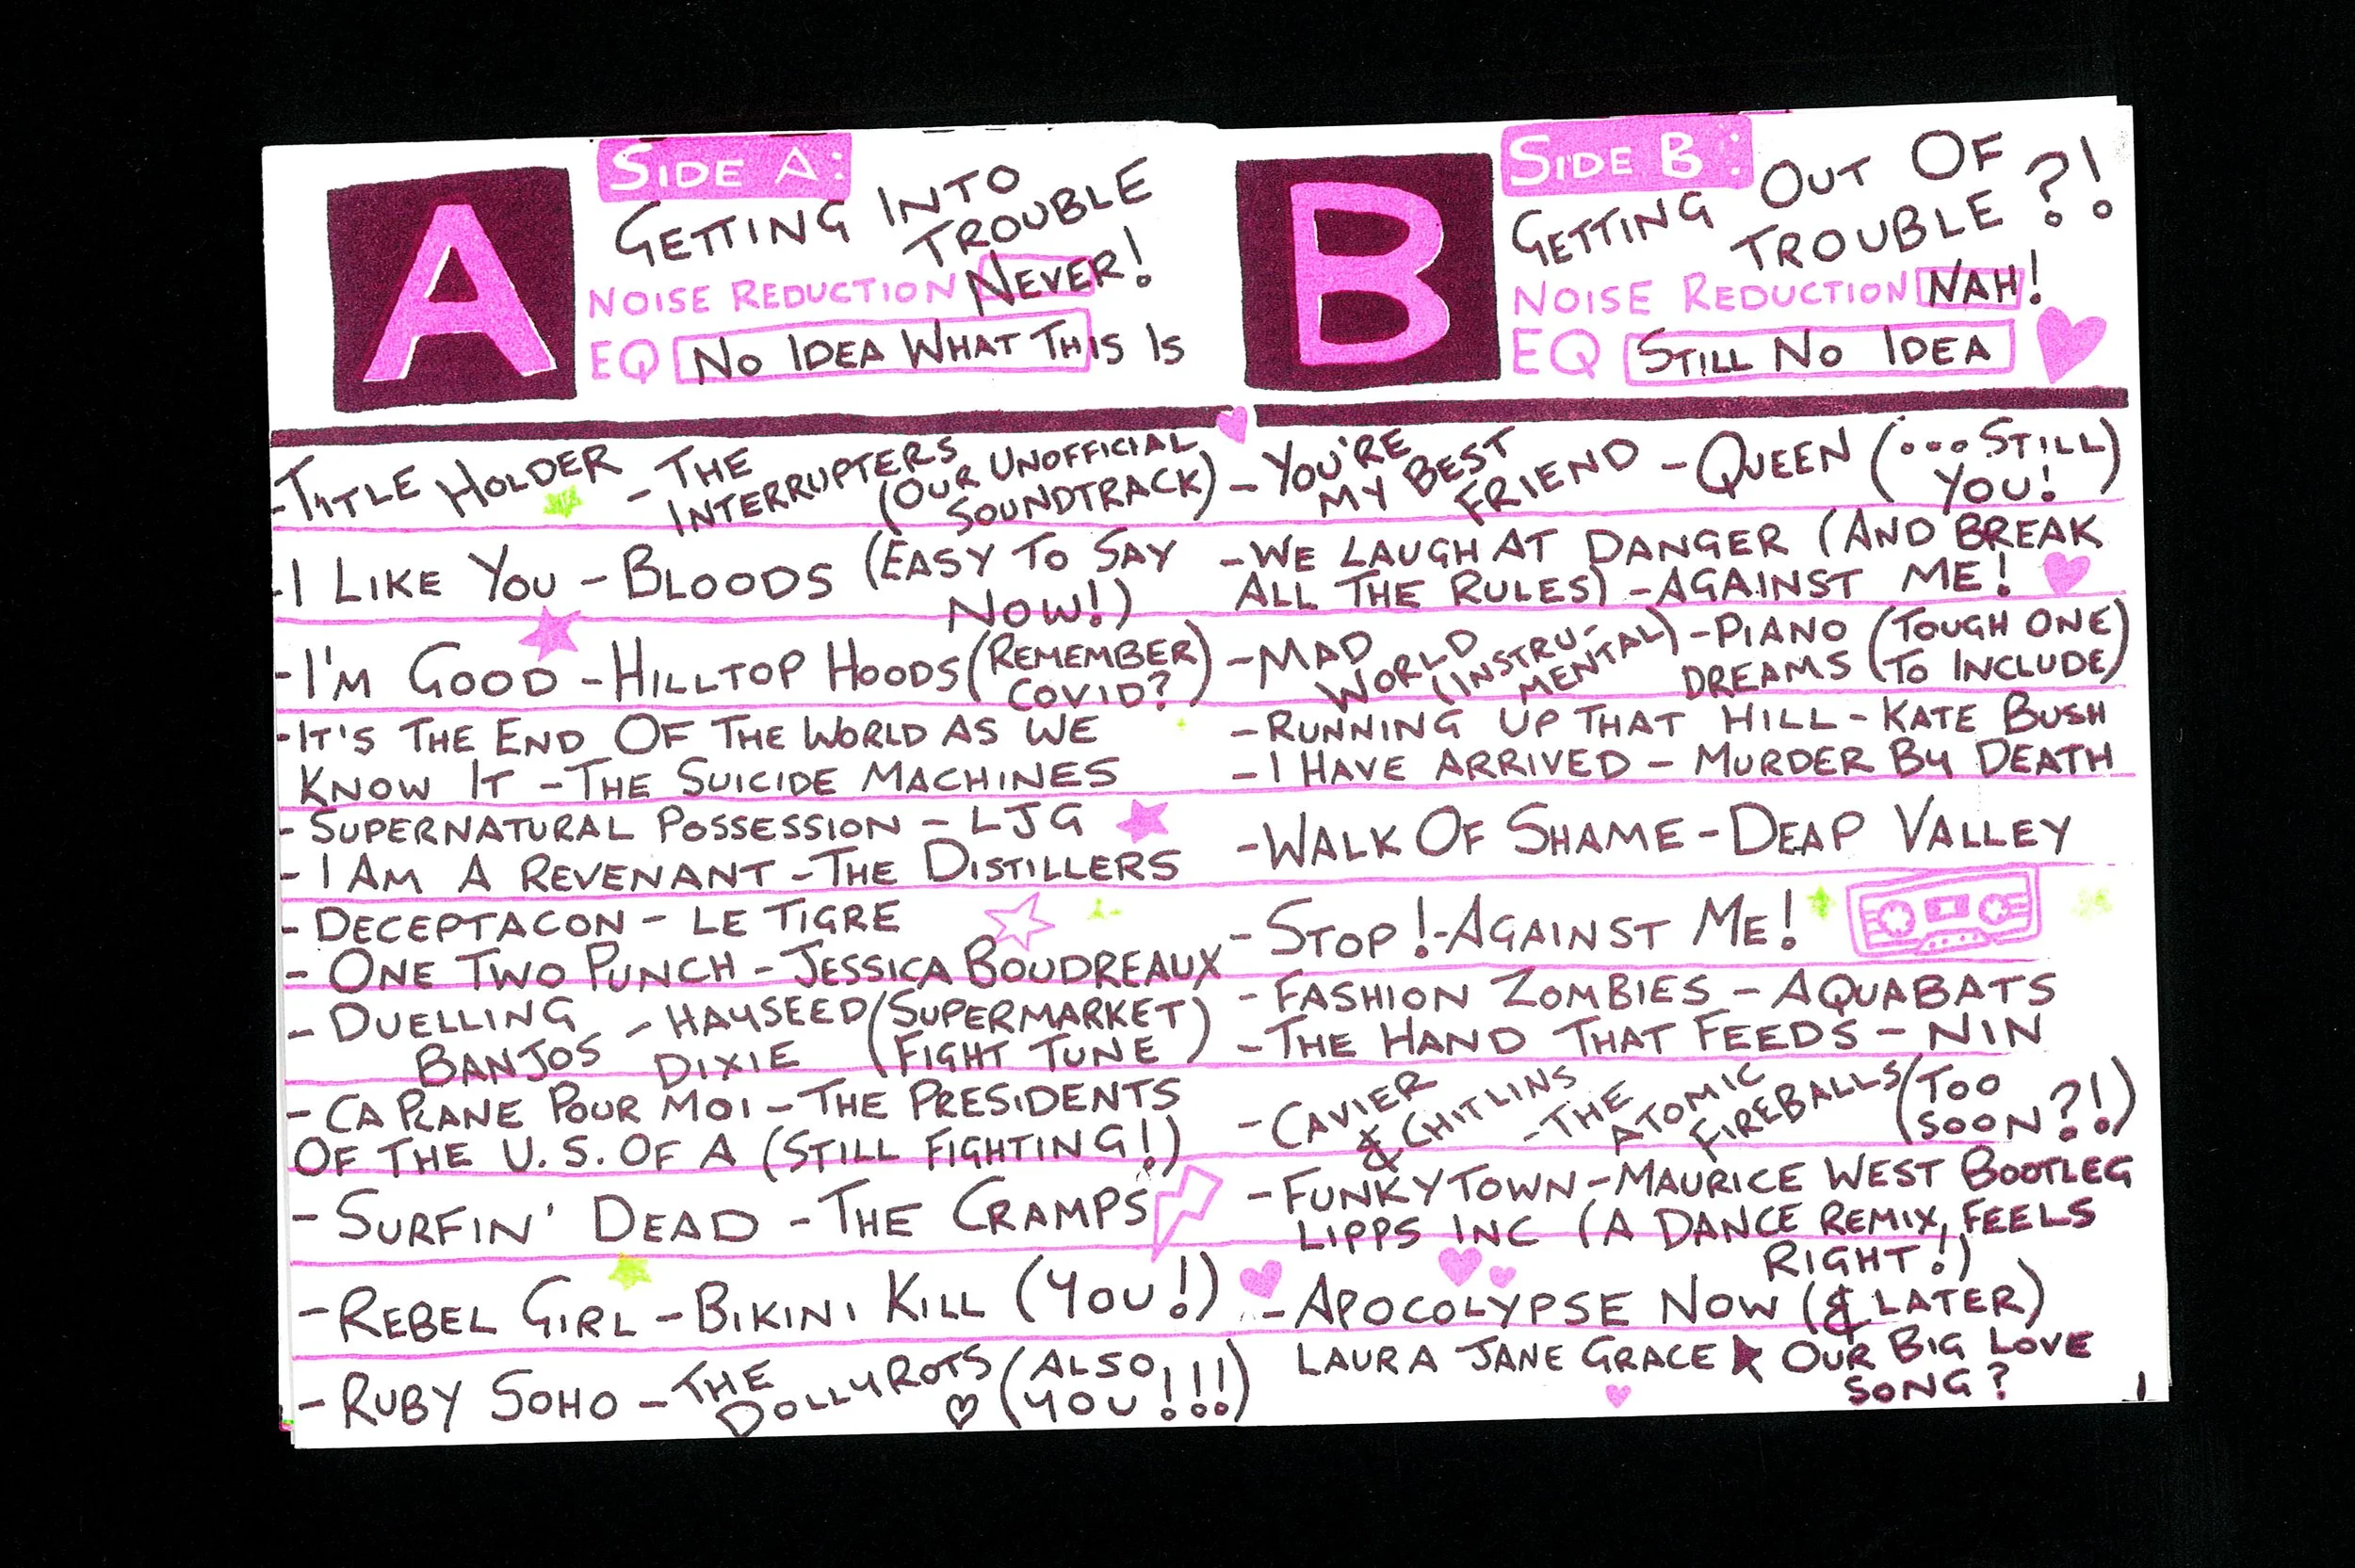 A
SIDE A:
GETTING INTO
TROUBLE
NOISE REDUCTION NEVER!
EQ NO IDEA WHAT THIS IS
-TITLE HOLDER - THE
INTERRUPTERS
(OUR UNOFFICIAL
SOUNDTRACK)
-I LIKE YOU - BLOODS (EASY TO SAY
NOW!)
-I'M GOOD - HILLTOP HOODS (REMEMBER
COVID?)
-IT'S THE END OF THE WORLD AS WE
KNOW IT - THE SUICIDE MACHINES
- SUPERNATURAL POSSESSION - LJG
- I AM A REVENANT - THE DISTILLERS
- DECEPTACON - LE TIGRE
- ONE TWO PUNCH - JESSICA BOUDREAUX
- DUELLING
BANJOS - HAYSEED
DIXIE (SUPERMARKET
FIGHT TUNE)
- CA PLANE POUR MOI - THE PRESIDENTS
OF THE U.S. OF A (STILL FIGHTING!)
- SURFIN' DEAD - THE CRAMPS
- REBEL GIRL - BIKINI KILL (YOU!)
- RUBY SOHO - THE
DOLLYROTS (ALSO
YOU!!!)
B
SIDE B:
GETTING OUT OF
TROUBLE?!
NOISE REDUCTION NAH!
EQ STILL NO IDEA
- YOU'RE
MY BEST
FRIEND - QUEEN (...STILL
YOU!)
-WE LAUGH AT DANGER (AND BREAK
ALL THE RULES) - AGAINST ME!
-MAD
WORLD
(INSTRU-
MENTAL) - PIANO
DREAMS (TOUGH ONE
TO INCLUDE)
- RUNNING UP THAT HILL - KATE BUSH
- I HAVE ARRIVED - MURDER BY DEATH
-WALK OF SHAME - DEAP VALLEY
- STOP! - AGAINST ME!
- FASHION ZOMBIES - AQUABATS
- THE HAND THAT FEEDS - NIN
- CAVIER
& CHITLINS
- THE
ATOMIC
FIREBALLS (TOO
SOON?!)
- FUNKYTOWN - MAURICE WEST BOOTLEG
LIPPS INC (A DANCE REMIX, FEELS
RIGHT!)
- APOCOLYPSE NOW (& LATER)
LAURA JANE GRACE ★ OUR BIG LOVE
SONG?